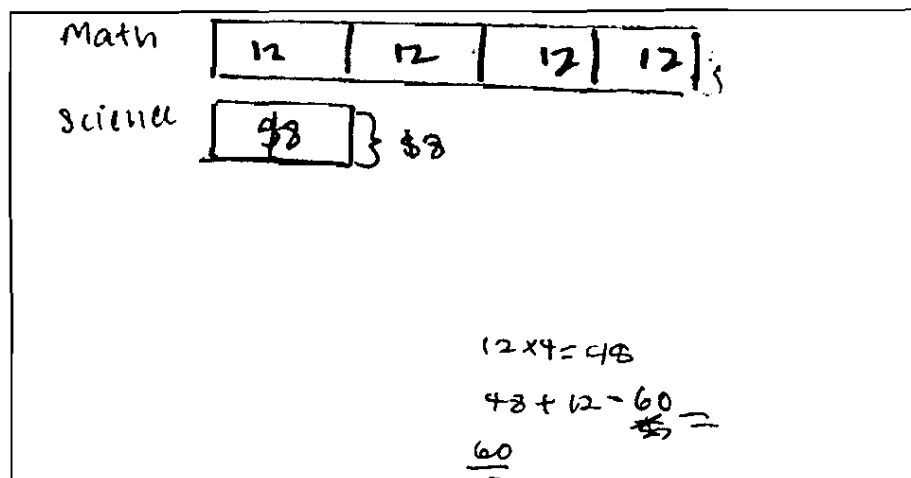 Math 12 12 12 12
Science $8 } $8
12 x 4 = 48
48 + 12 - 60 =
60